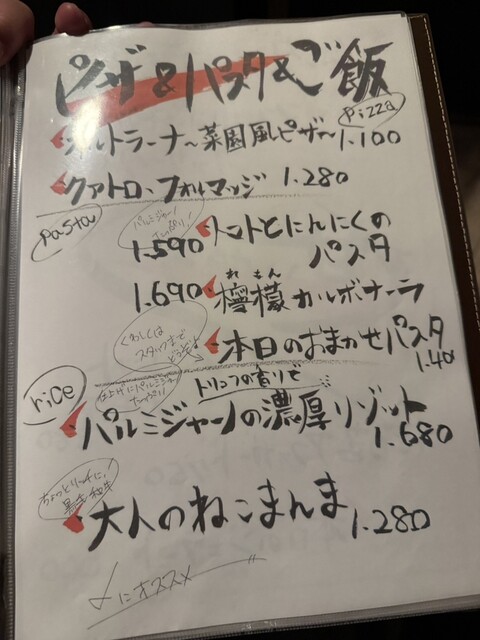 ピザ&パスタ&ご飯
pizza
オルトラーナ〜菜園風ピザ〜 1.100
クアトロ・フォルマッジ 1.280
pasta
パルミジャーノ
たっぷり!
トマトとにんにくの
パスタ
1.590
れもん
檸檬カルボナーラ
1.690
くわしくは
スタッフまで
どうぞ
本日のおまかせパスタ
1.40
rice
仕上げにパルミジャーノ
たっぷり
トリュフの香りで
パルミジャーノの濃厚リゾット
1.680
ちょっとリッチに!
黒毛和牛
大人のねこまんま 1.280
〆にオススメ